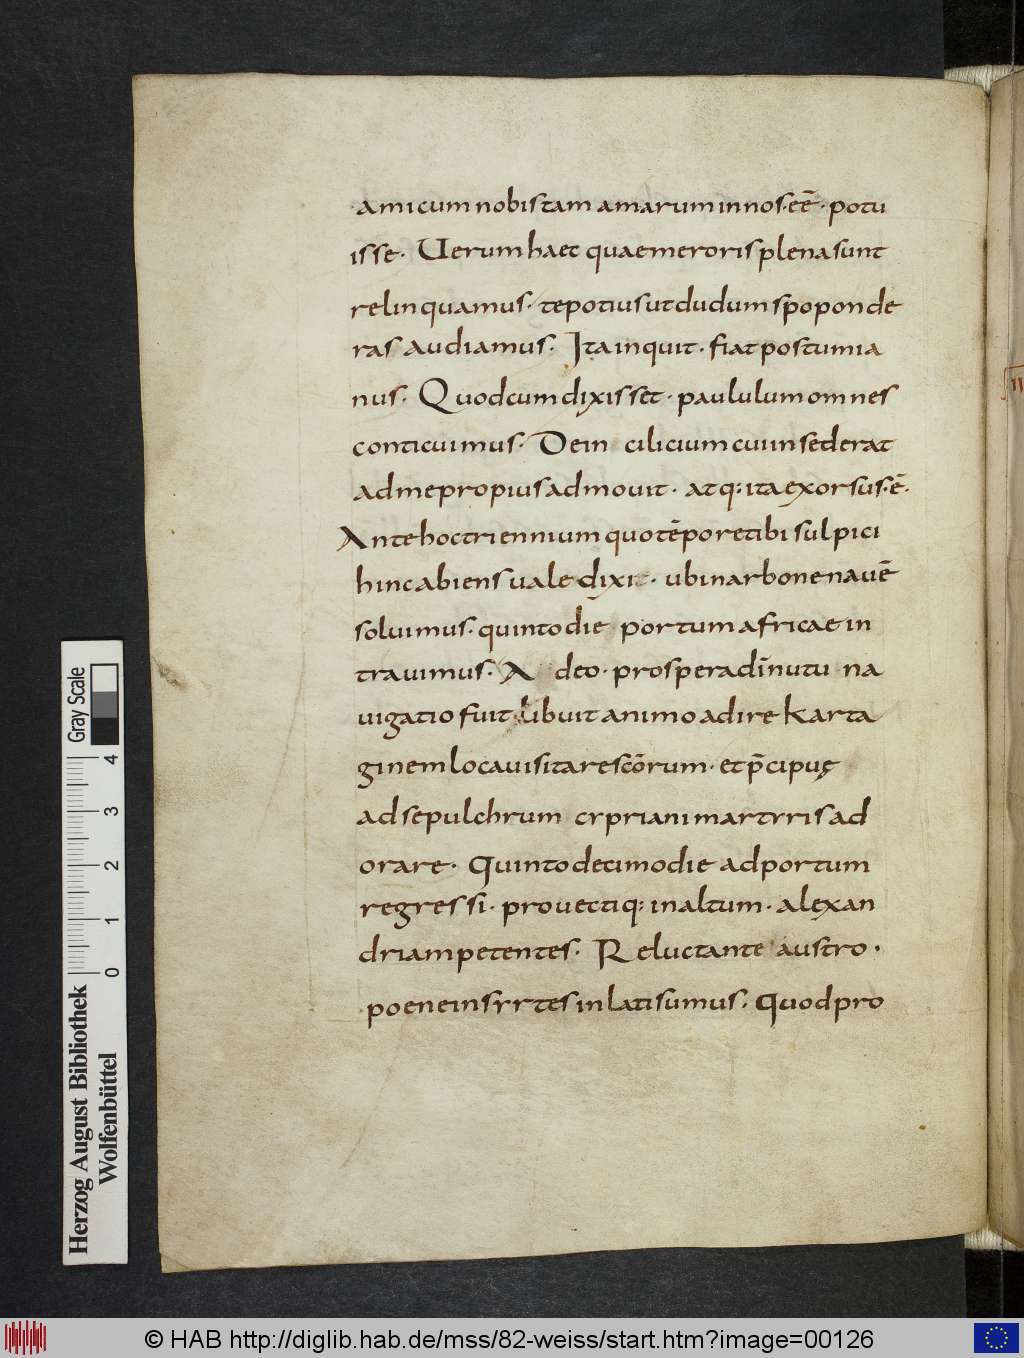 amicum nobis tam amarum in nos· eē· potu
isse· Uerum haec quae meroris plena sunt
relinquamus· te potius ut dudum spoponde
ras audiamus· Ita inquit· fiat postumia
nus· Quod cum dixisset· paululum omnes
conticuimus· Dein cilicium cui insederat
ad me propius admouit· atq; ita exorsus· ē·
Ante hoc triennium quo tēpore tibi sulpici
hinc abiens uale dixi· ubi narbone nauē
soluimus· quinto die portum africae in
trauimus· A deo· prospera di nutu na
uigatio fuit libuit animo adire karta
ginem loca uisitare scōrum· et p̄cipuę
ad sepulchrum cypriani martyris ad
orare· Quinto decimo die ad portum
regressi· prouectiq; in altum· alexan
driam petentes· Reluctante austro·
poene in syrtes inlati sumus· Quod pro
II
Herzog August Bibliothek
Wolfenbüttel
Gray Scale
0 1 2 3 4
© HAB http://diglib.hab.de/mss/82-weiss/start.htm?image=00126